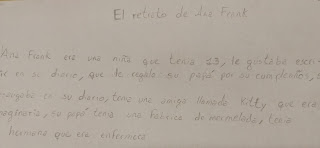 El retrato de Ana Frank
Ana Frank era una niña que tenia 13, le gustaba escri-
ar en su diario, que le regalo su papá por su cumpleaños, s
en su diario, tenia una amiga llamada Kitty que era
maginaria, su papá tenia una fabrica de mermelada, tenia
hermana que era enfermera